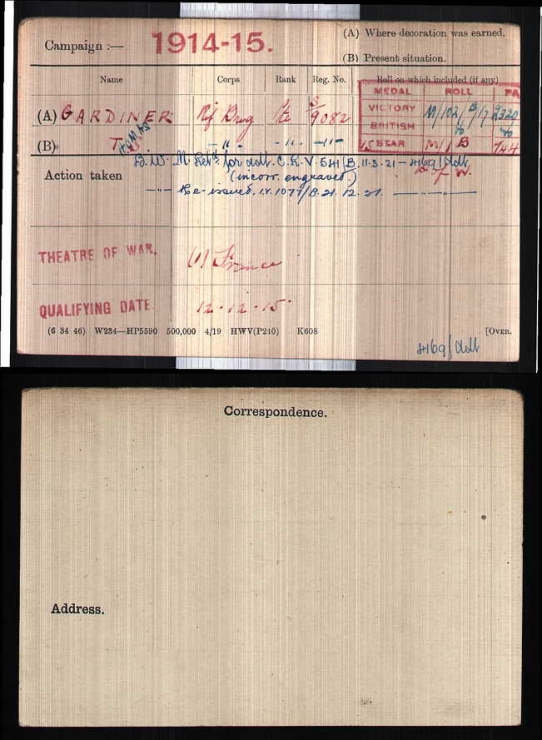 Campaign :— 1914-15.
(A) Where decoration was earned.
(B) Present situation.
Name Corps Rank Reg. No. Roll on which included (if any)
MEDAL ROLL PA
(A) GARDINER Rif Brig Pte S/9082 VICTORY M/102
BRITISH do do
(B) T. —"— —"— —"— 15 STAR M/1
B.W. M. for adt. C.R.V. 541 B. 11.3.21 — 4169/Adt
Action taken (incorr. engraved.)
Re-issued. 1077/B. 21.12.21.
THEATRE OF WAR. (1) France
QUALIFYING DATE. 12-12-15.
(6 34 46) W234—HP5590 500,000 4/19 HWV(P240) K608 [OVER.
4169/Adt
Correspondence.
Address.